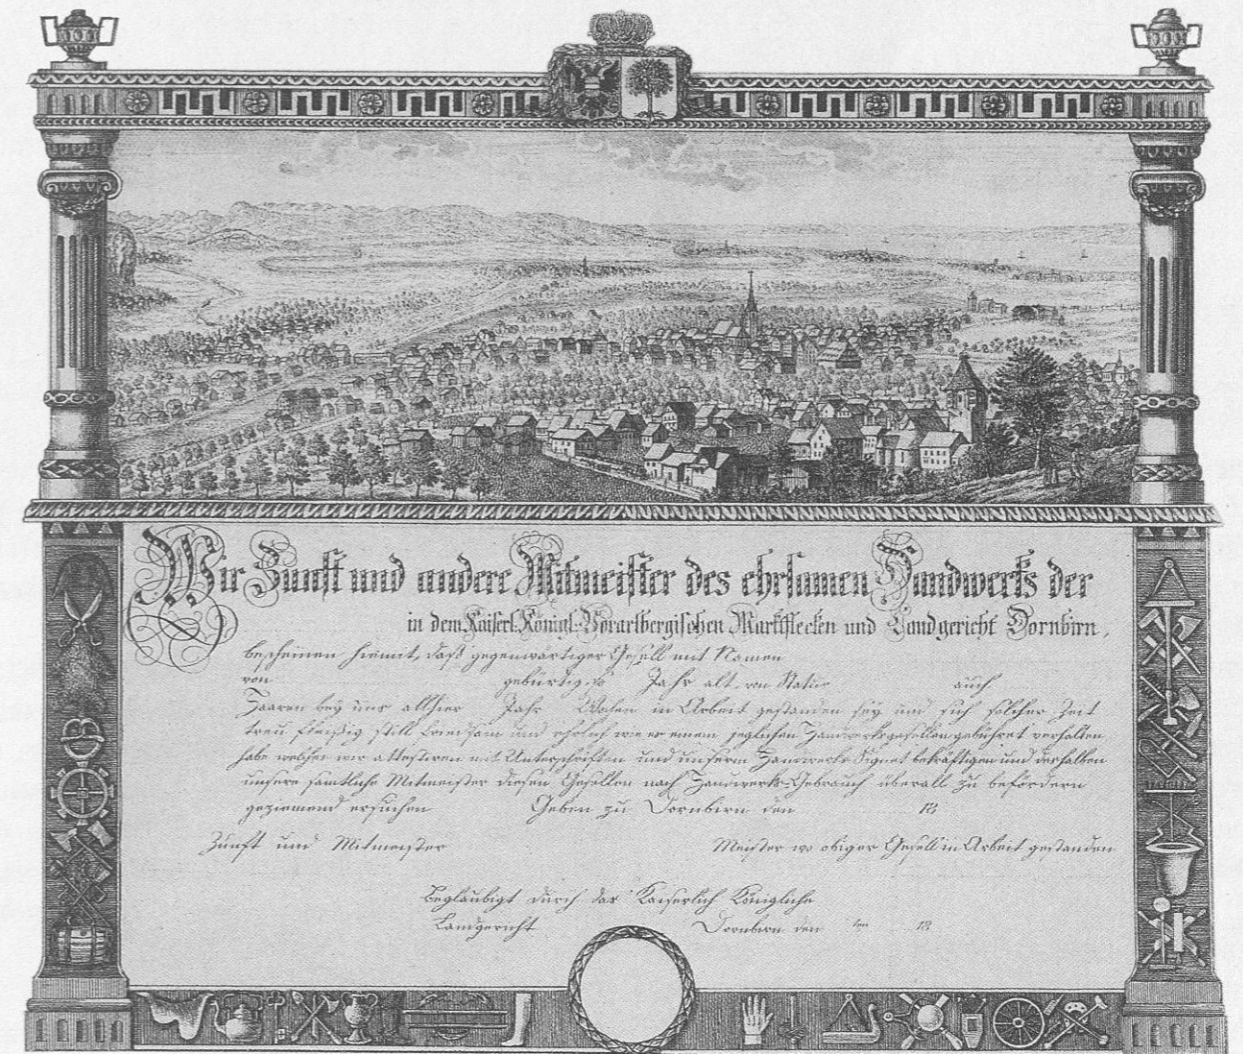 Wir Zunft und andere Mitmeister des ehrsamen Handwerks der
in dem Kaiserl. Königl. Vorarlbergischen Marktflecken und Landgericht Dornbirn,
bescheinen hiemit, daß gegenwärtiger Gesell mit Namen
von gebürtig, so Jahr alt, von Statur auch
Haaren bey uns allhier Jahr Wochen in Arbeit gestanden sey und sich solcher Zeit
treu fleißig still friedsam und ehrlich wie er einem jeglichen Handwerksgesellen gebühret verhalten
habe welches wir attestiren mit Unterschriften und unserm Handwerks Signet bekräftigen und derhalben
unsere sämtliche Mitmeister diesen Gesellen nach Handwerks-Gebrauch überall zu befördern
geziemend ersuchen Geben zu Dornbirn den 18
Zunft und Mitmeister Meister wo obiger Gesell in Arbeit gestanden
Beglaubigt durch das Kaiserlich Königliche
Landgericht Dornbirn den ten 18